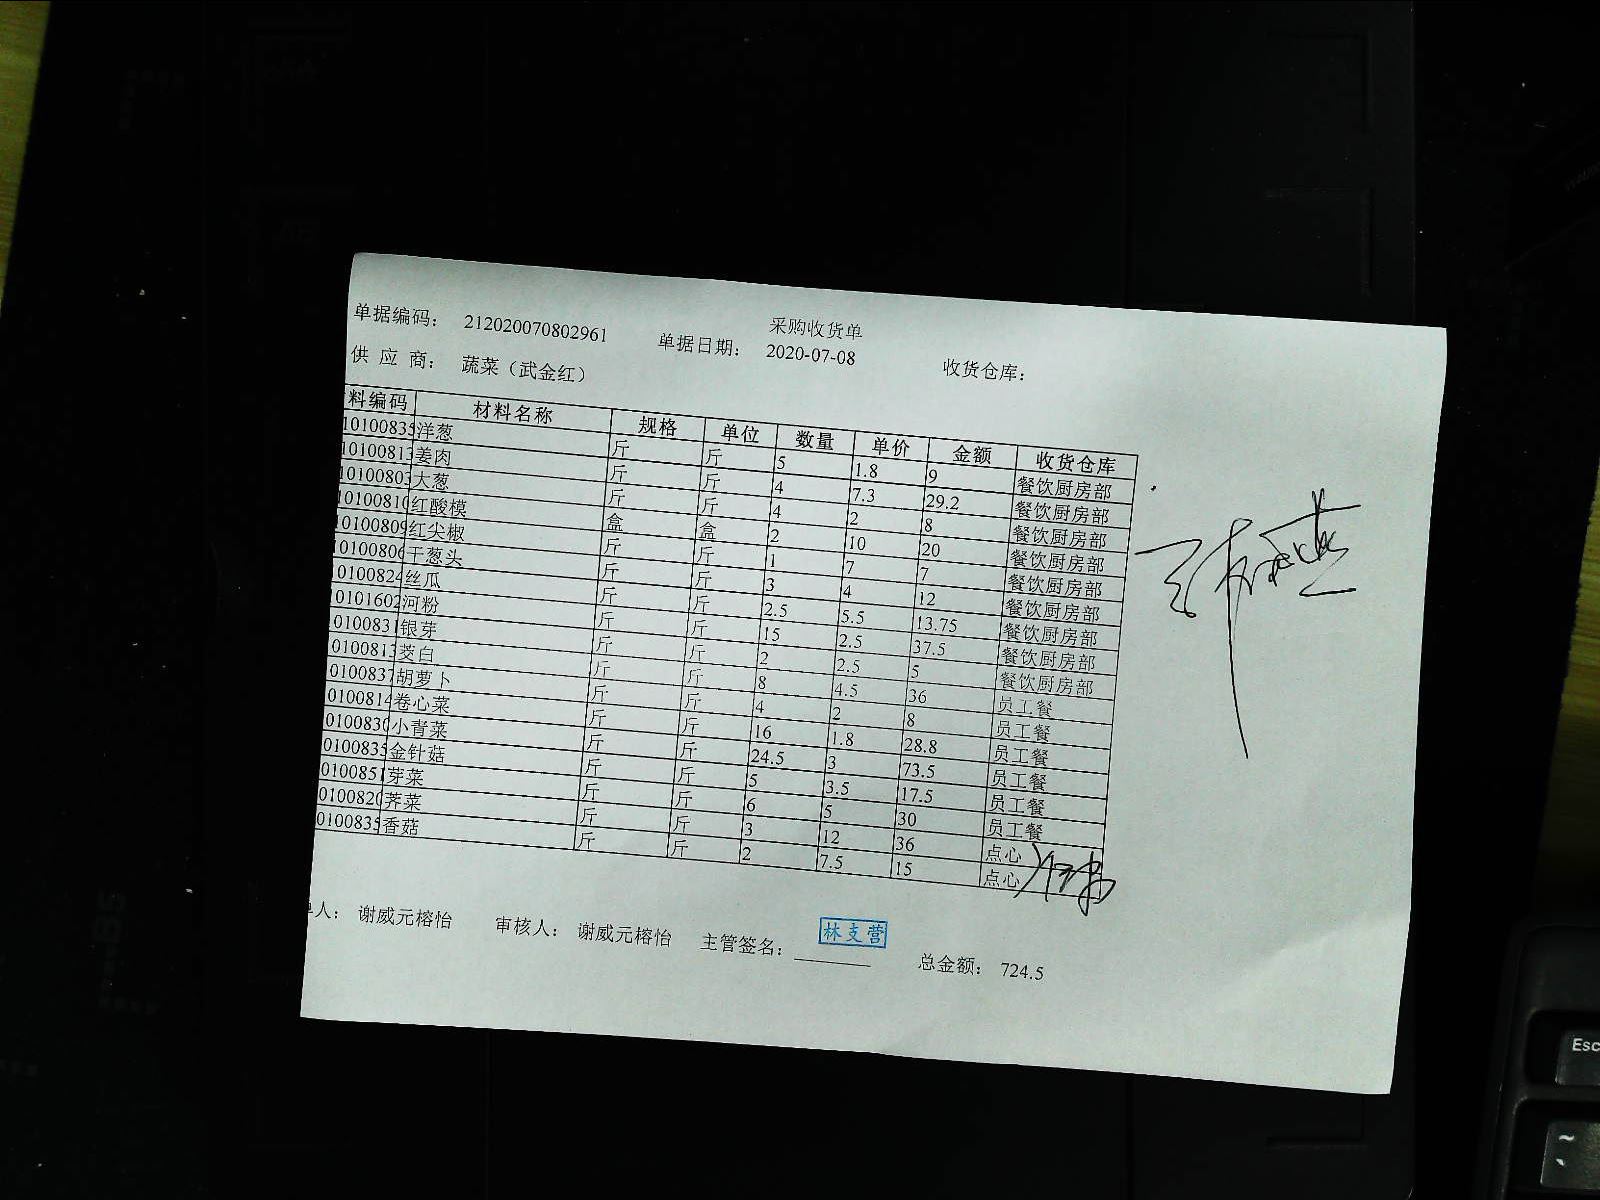 采购收货单
单据编码： 212020070802961 单据日期： 2020-07-08 收货仓库：
供 应 商： 蔬菜（武金红）
料编码 材料名称 规格 单位 数量 单价 金额 收货仓库
10100835 洋葱 斤 斤 5 1.8 9 餐饮厨房部
10100813 姜肉 斤 斤 4 7.3 29.2 餐饮厨房部
10100803 大葱 斤 斤 4 2 8 餐饮厨房部
10100810 红酸模 盒 盒 2 10 20 餐饮厨房部
10100809 红尖椒 斤 斤 1 7 7 餐饮厨房部
10100806 干葱头 斤 斤 3 4 12 餐饮厨房部
10100824 丝瓜 斤 斤 2.5 5.5 13.75 餐饮厨房部
10101602 河粉 斤 斤 15 2.5 37.5 餐饮厨房部
0100831 银芽 斤 斤 2 2.5 5 餐饮厨房部
0100813 茭白 斤 斤 8 4.5 36 员工餐
0100837 胡萝卜 斤 斤 4 2 8 员工餐
0100814 卷心菜 斤 斤 16 1.8 28.8 员工餐
0100830 小青菜 斤 斤 24.5 3 73.5 员工餐
0100835 金针菇 斤 斤 5 3.5 17.5 员工餐
0100851 芽菜 斤 斤 6 5 30 员工餐
0100820 荠菜 斤 斤 3 12 36 点心
0100835 香菇 斤 斤 2 7.5 15 点心
单人： 谢威元榕怡 审核人： 谢威元榕怡 主管签名： 林支营 总金额： 724.5
Esc
~